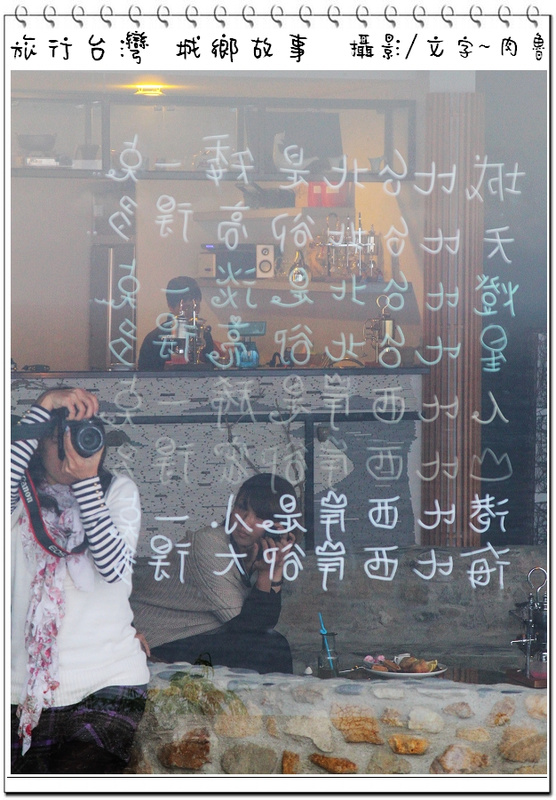 旅行台灣 城鄉故事 攝影/文字~肉魯
城比台北是矮一點
天比台北卻高得多
燈比台北是淡一點
星比台北卻亮得多
人比西岸是稀一點
山比西岸卻得多
港比西岸是小一點
海比西岸卻大得多
Canon